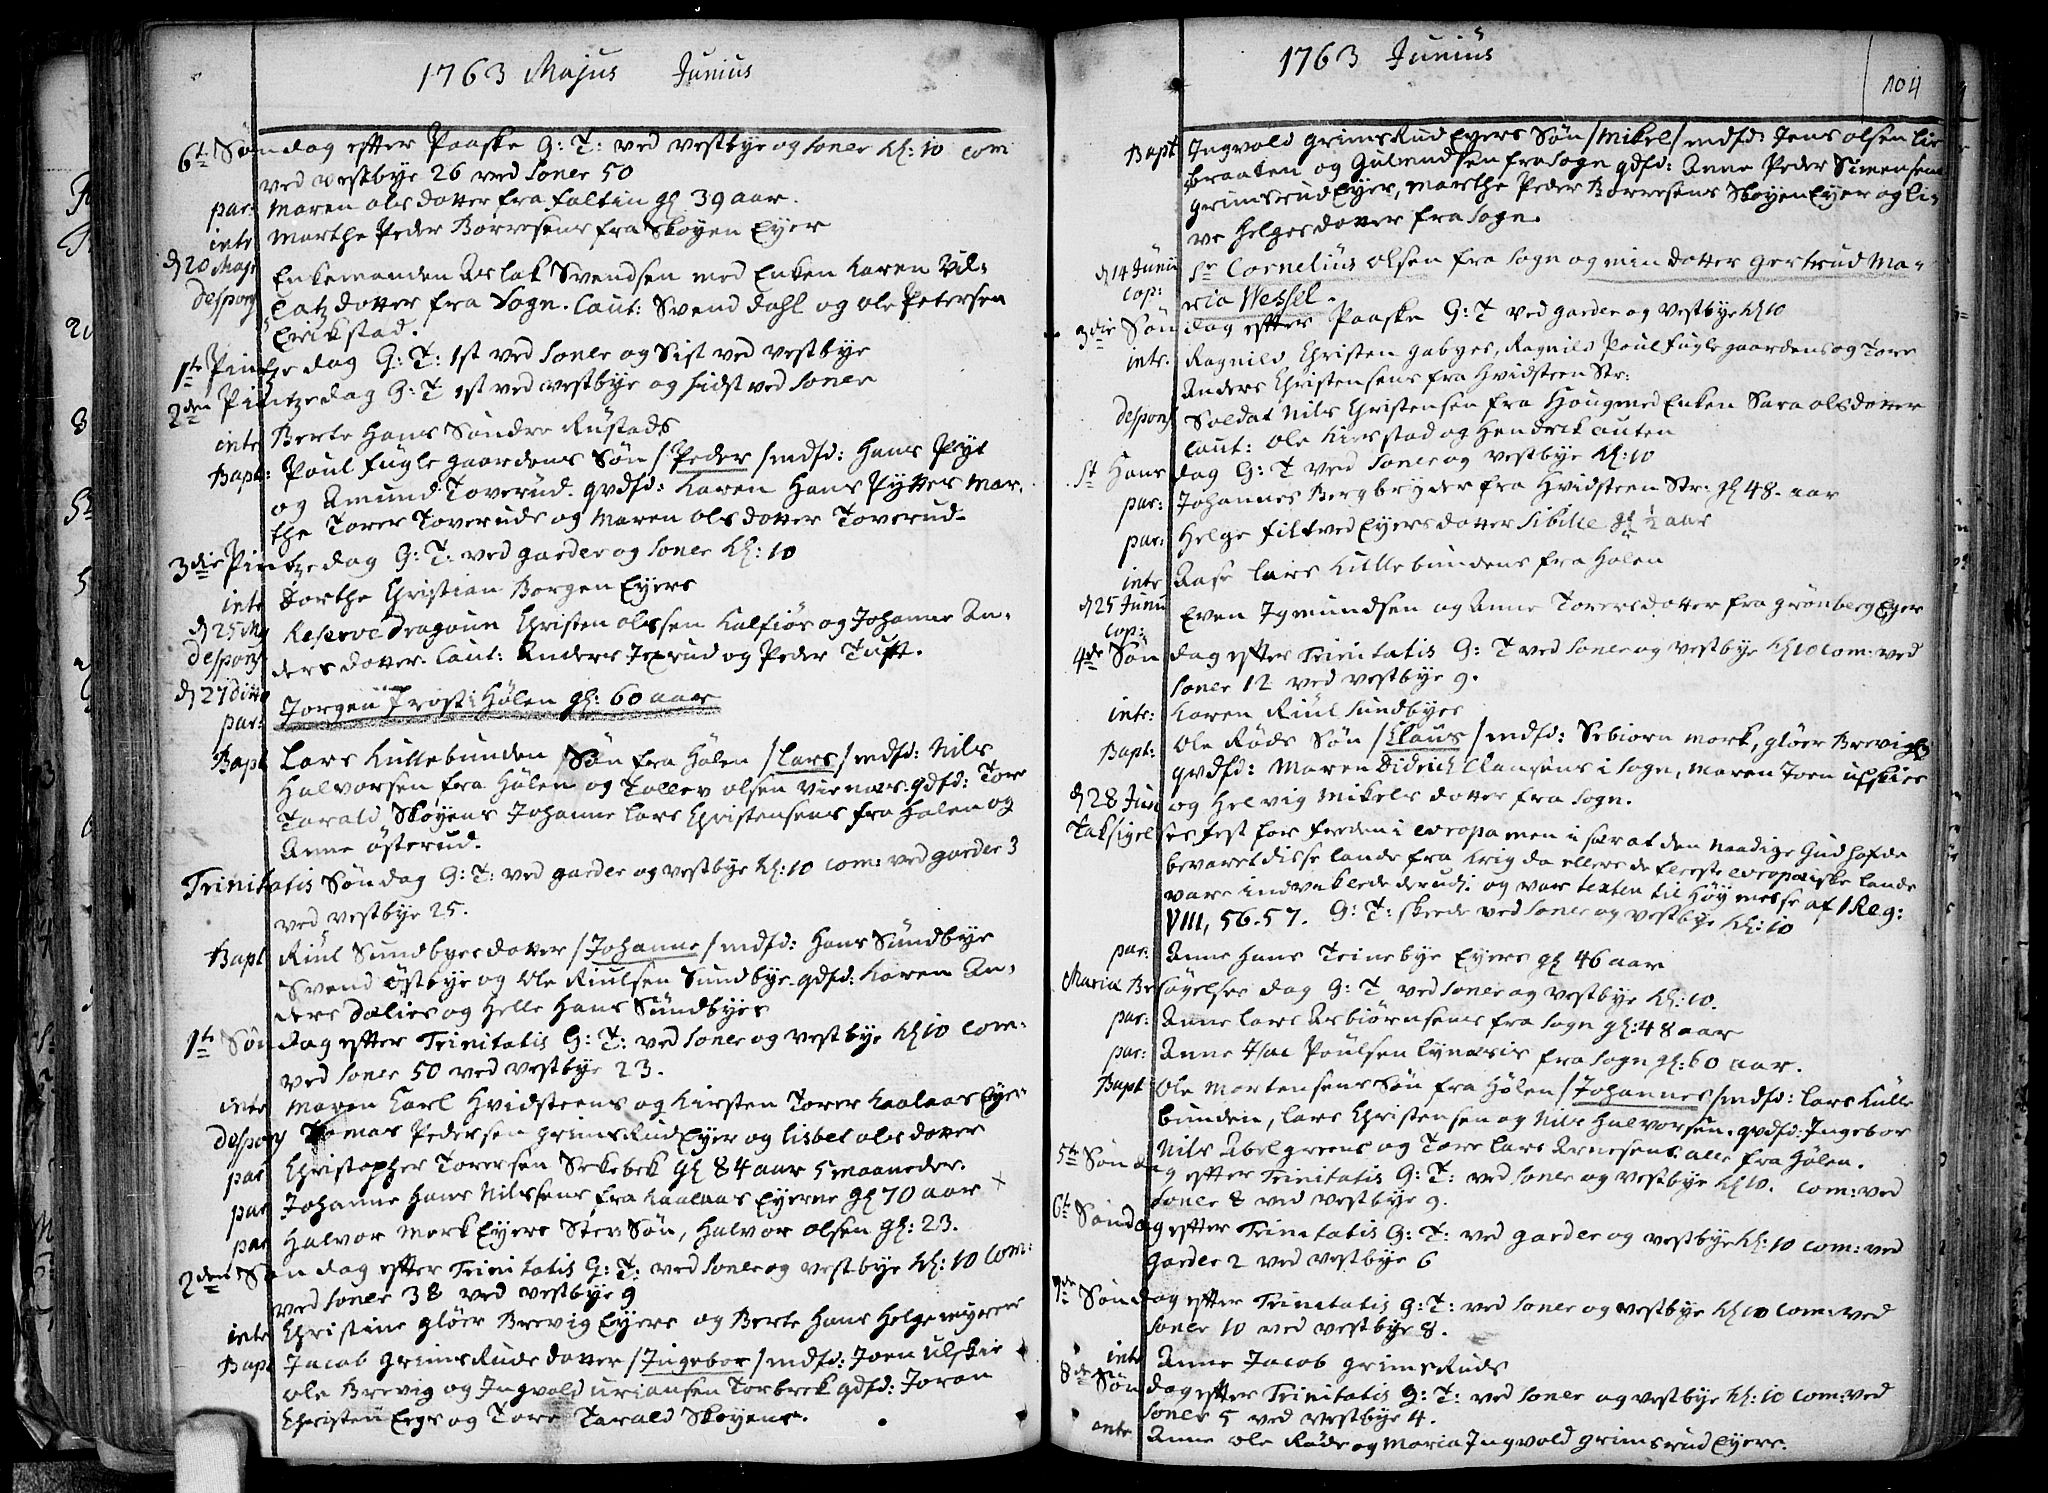 1763 Majus Junius
6te Søndag efter Paaske G: T: ved vestbye og soner kl: 10 com
ved vestbye 26 ved soner 50
par: Maren olsdotter fra faltin gl 39 aar.
intr Marthe Peder Børresens fra Skøyen Eyer
d 20 Maji Enkemanden Aslak Svendsen med Enken Karen
despons dotter fra Sogn. Caut: Svend dahl og ole Petersen
Erikstad.
1te Pintzedag G: T: 1st ved soner og Sist ved vestbye
2den Pintzedag G: T 1st ved vestbye og sidst ved soner
intr Berte Hans Søndre Rustads
Bapt: Poul fuglegaardens Søn /Peder/ mdfd: Hans Pyt
og Amund Toverud. qvdfd: Karen Hans Pyttes Mar,
the Torer Toveruds og Maren olsdotter Toverud
3die Pintzedag G: T: ved garder og soner kl: 10
intr Dorthe Christian Borgen Eyers
d 25 Maj Reserve dragoun Christen olssen Kalfiøs og Johanne An,
despons dersdotter. Caut: Anders Jexrud og Peder Tuft.
d 27 dito
par: Jørgen Frost i Hølen gl: 60 aar
Bapt Lars Kullebunden Søn fra Hølen /Lars/ mdfd: Nils
Halvorsen fra Hølen og Tollev olsen Viernæs. qdfd: Tore
Tarald Skøyens Johanne Lars Christensens fra Hølen og
Anne østerud.
Trinitatis Søndag G: T: ved garder og vestbye kl: 10 com: ved garder 3
ved vestbye 25.
Bapt Riul Sundbyes dotter /Johanne/ mdfd: Hans Sundbye
Svend østbye og ole Riulsen Sundbye. qdfd: Karen An,
ders Dælies og Helle Hans Sundbyes
1te Søndag efter Trinitatis G: T: ved soner og vestbye kl 10 com:
ved soner 50 ved vestbye 23.
intr Maren Carl Hvidsteens og Kirsten Torer Kaalaas Eyer
despons Tomas Pedersen grimsRud Eyer og Lisbet olsdotter
par Christopher Torersen Sekebek gl 84 aar 5 maaneder.
par Johanne Hans Nilssens fra Kaalaas Eyerne gl 70 aar
par Halvor Mork Eyers Stev Søn, Halvor olsen gl: 23.
2den Søndag efter Trinitatis G: T: ved soner og vestbye kl: 10 com:
ved soner 38 ved vestbye 9
intr Christine gløer Brevig Eyers og Berte Hans Helgemyrers
Bapt Jacob grimsRuds dotter /Ingebor/ mdfd: Joen ulskie
ole Brevig og Ingvald uriansen Torbrek qdfd: Joran
Christen Eegs og Tore Tarald Skøyens.
1763 Junius
104
Bapt Ingvold grimsRud Eyers Søn /Mikel/ mdfd: Jens olsen Lie
braaten og Gulmundsen fra Sogn qdfd: Anne Peder Simensens
grimsrud Eyer, Marthe Peder Børresens Skøyen Eyer og Li,
ve Helgesdotter fra Sogn.
d 14 Junii Sr Cornelius olsen fra Sogn og min dotter Gertrud Ma,
cop: ria Wessel.
3die Søndag efter Paaske G: T ved garder og vestbye kl 10
intr. Ragnild Christen gabyes, Ragnild Poul fuglegaardens og Tore
Anders Christensens fra Hvidsteen Str:
despons Soldat Nils Christensen fra Houg med Enken Sara olsdotter
Caut: ole Kierstad og Hendrik
St Hans dag G: T ved soner og vestbye kl: 10
par: Johannes Bergbryder fra Hvidsteen Str: gl 48. aar
par: Helge filtved Eyers dotter Sibille gl ½ aar
intr Aase Lars Kullebundens fra Hølen
d 25 Junii
cop: Even Igmundsen og Anne Torersdotter fra Grønberg Eyer
4de Søndag efter Trinitatis G: T ved soner og vestbye kl 10 com: ved
soner 12 ved vestbye 9.
intr: Karen Riul Sundbyes
Bapt: ole Røds Søn /Claus/ mdfd: Sebiørn mork, gløer Brevig
qvdfd: Maren Didrich Clausens i Sogn, Maren Joen ulskies
d 28 Jun og Helvig Mikels dotter fra Sogn.
Taksigelses fest for freden i evropa men i særat den Naadige Gud hafde
bevaret disse lande fra Krig da ellers de fleeste evropæiske lande
vare indviklede derudi og var texten til Høymesse af 1 Reg:
VIII, 56.57. G: T: skeede ved soner og vestbye kl: 10
par: Anne Hans Teinebye Eyers gl 46 aar
Mariæ Besøgelses dag G: T ved soner og vestbye kl: 10.
par: Anne Lars Asbiørnsens fra Sogn gl: 48 aar
par: Anne Isac Poulsen Lynæsis fra Sogn gl: 60 aar.
Bapt ole Mortensens Søn fra Hølen /Johannes/ mdfd: Lars Kulle
bunden, Lars Christensen og Nils Halvorsen. qvdfd: Ingebor
Nils Abelgreens og Tore Lars Arnesens alle fra Hølen.
5te Søndag efter Trinitatis G: T: ved soner og vestbye kl 10. com: ved
soner 8 ved vestbye 9.
6te Søndag efter Trinitatis G: T: ved garder og vestbye kl: 10 com: ved
Garder 2 ved vestbye 6
7de Søndag efter Trinitatis G: T: ved soner og vestbye kl 10 com: ved
soner 10 ved vestbye 8.
intr Anne Jacob grimsRuds
8de Søndag efter Trinitatis G: T: ved soner og vestbye kl: 10 com: ved
soner 5 ved vestbye 4.
intr Anne ole Røds og Maria Ingvold grimsrud Eyers.